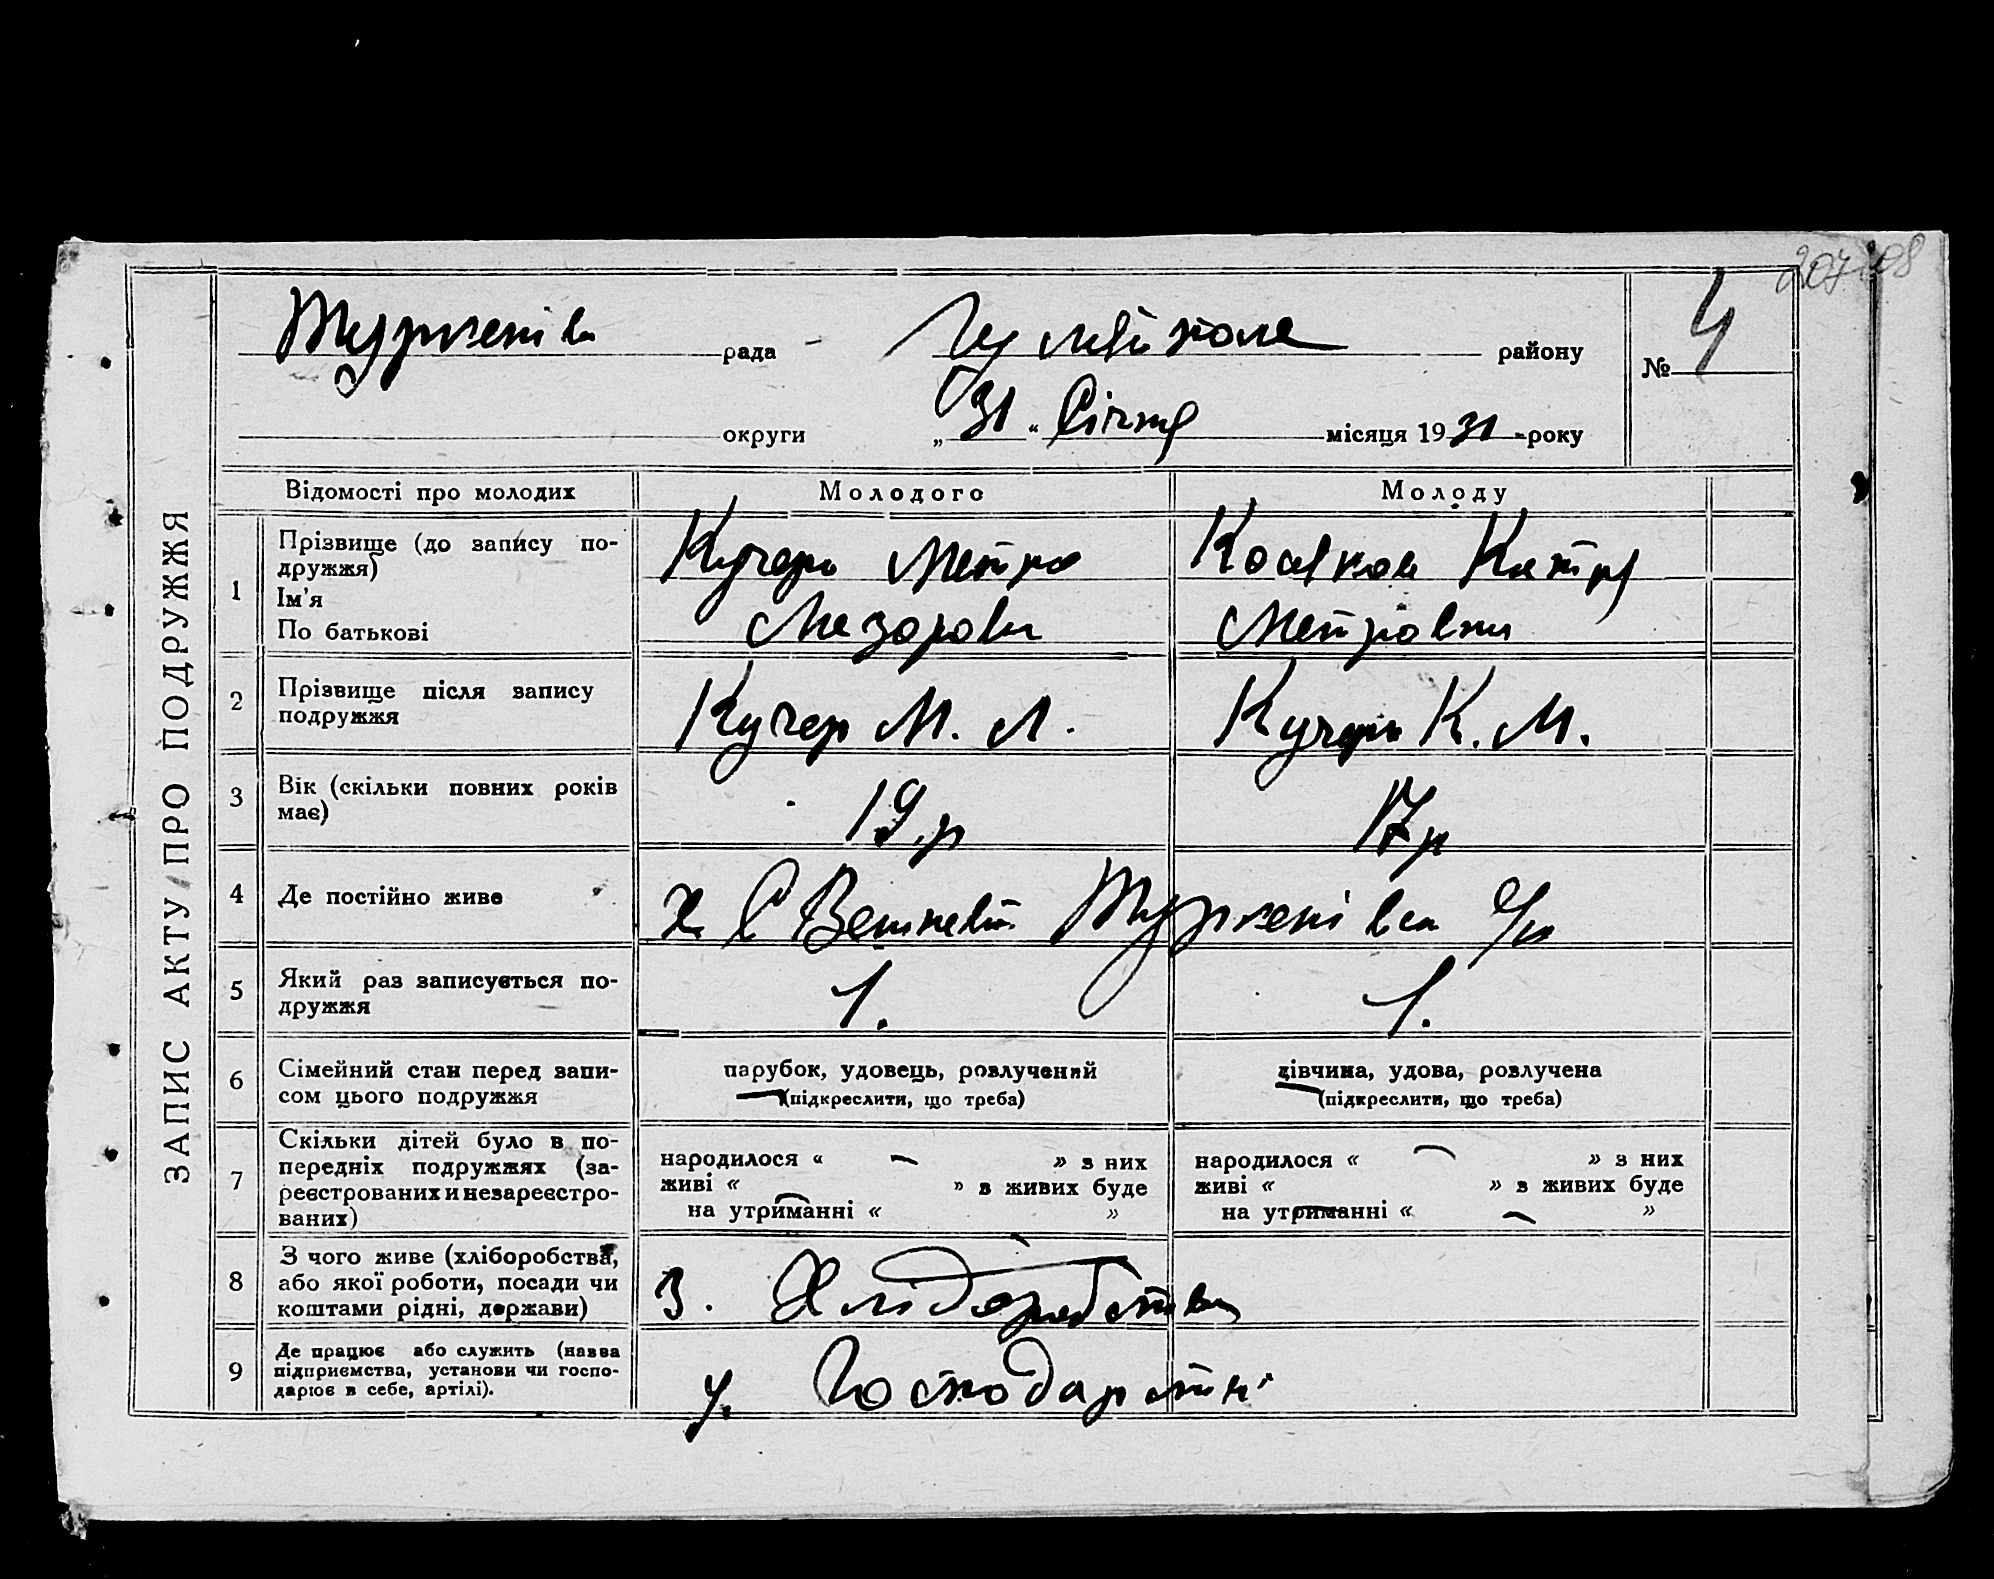 207 08
Туркенівк рада Гуляйполе району № 4
округи „31“ Січня місяця 1931 року
ЗАПИС АКТУ ПРО ПОДРУЖЖЯ
Відомості про молодих Молодого Молоду
1 Прізвище (до запису по-
дружжя)
Ім'я
По батькові
Кучерь Метро
Лазорови
Катр
Метровна
2 Прізвище після запису
подружжя
Кучер М. Л. Кучерь К. М.
3 Вік (скільки повних років
має)
19.р 17р
4 Де постійно живе
Х. Туркенівск с/р
5 Який раз записується по-
дружжя
1. 1.
6 Сімейний стан перед запи-
сом цього подружжя
парубок, удовець, розлучений
(підкреслити, що треба)
дівчина, удова, розлучена
(підкреслити, що треба)
7 Скільки дітей було в по-
передніх подружжях (за-
реєстрованих и незареєстро-
ваних)
народилося « — » з них
живі « » з живих буде
на утриманні « »
народилося « — » з них
живі « » з живих буде
на утриманні « — »
8 З чого живе (хліборобства,
або якої роботи, посади чи
коштами рідні, держави)
З. Хліборобства
9 Де працює або служить (назва
підприємства, установи чи госпо-
дарює в себе, артілі).
У. Господарстві